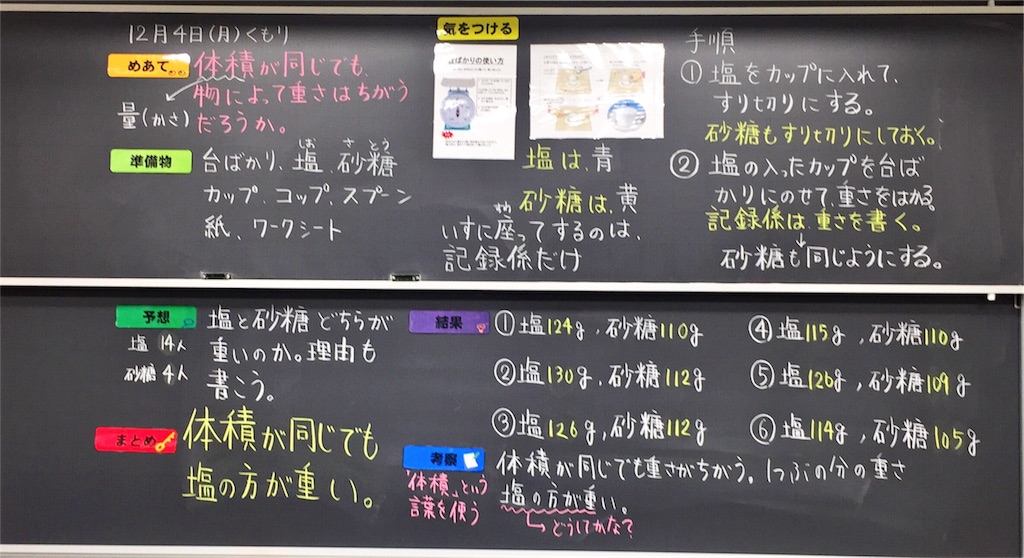 12月4日(月)くもり
めあて
体積が同じでも、
物によって重さはちがう
だろうか。
量(かさ)
準備物
台ばかり、塩、砂糖
しお さとう
カップ、コップ、スプーン
紙、ワークシート
気をつける
ばかりの使い方
塩は、青
砂糖は、黄
すわ
いすに座ってするのは、
記録係だけ
手順
①塩をカップに入れて、
すり切りにする。
砂糖もすり切りにしておく。
②塩の入ったカップを台ば
かりにのせて、重さをはかる。
記録係は、重さを書く。
砂糖も同じようにする。
予想
塩と砂糖どちらが
重いのか。理由も
書こう。
塩 14人
砂糖 4人
まとめ
体積が同じでも
塩の方が重い。
結果
①塩124g、砂糖110g
②塩130g、砂糖112g
③塩126g、砂糖112g
④塩115g、砂糖110g
⑤塩126g、砂糖109g
⑥塩114g、砂糖105g
考察
「体積」という
言葉を使う
体積が同じでも重さがちがう。1つぶの分の重さ
塩の方が重い。
どうしてかな?